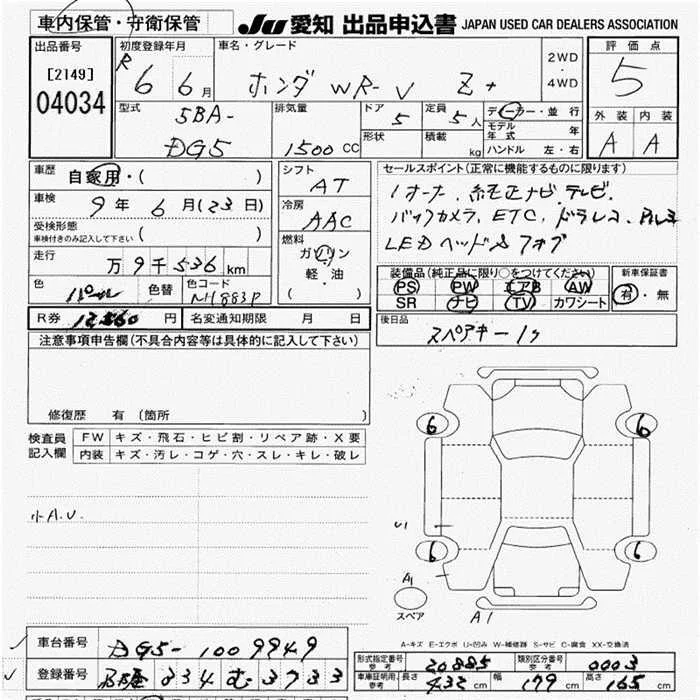 車内保管・守衛保管
JU 愛知 出品申込書 JAPAN USED CAR DEALERS ASSOCIATION
出品番号
[2149]
04034
初度登録年月
R 6 6月
車名・グレード
ホンダ WR-V Z+
2WD・4WD
評価点
5
型式
5BA-
DG5
排気量
1500 CC
ドア
5
形状
定員
5人
積載
kg
ディーラー・並行
モデル年式 年
ハンドル 左・右
外装 内装
A A
車歴
自家用・( )
車検
9年 6月(23日)
受検形態
車検付きのみ記入して下さい( )
走行
万9千536km
色
パール
色替
色コード
NH883P
シフト
AT
冷房
AAC
燃料
ガソリン
軽・油
( )
セールスポイント(正常に機能するものに限ります)
1オーナ、純正ナビ、テレビ、
バックカメラ、ETC、ドラレコ、アルミ
LEDヘッド&フォグ
装備品(純正品に限り○をつけてください)
PS PW エアB AW
SR ナビ TV カワシート
新車保証書
有・無
R券 12,560 円
名変通知期限 月 日
後日品
スペアキー1ヶ
注意事項申告欄(不具合内容等は具体的に記入して下さい)
修復歴 有(箇所
検査員
記入欄
FW キズ・飛石・ヒビ割・リペア跡・X要
内装 キズ・汚レ・コゲ・穴・スレ・キレ・破レ
小A.U.
6 6
U1
6 6
A1
スペア
A1
A-キズ E-エクボ U-凹み W-補修跡 S-サビ C-腐食 XX-交換済
車台番号 DG5-1009949
登録番号 334 む 3733
形式指定番号 参考 20885
類別区分番号 参考 0003
車庫証明用 参考 長さ 432 cm 幅 179 cm 高さ 165 cm